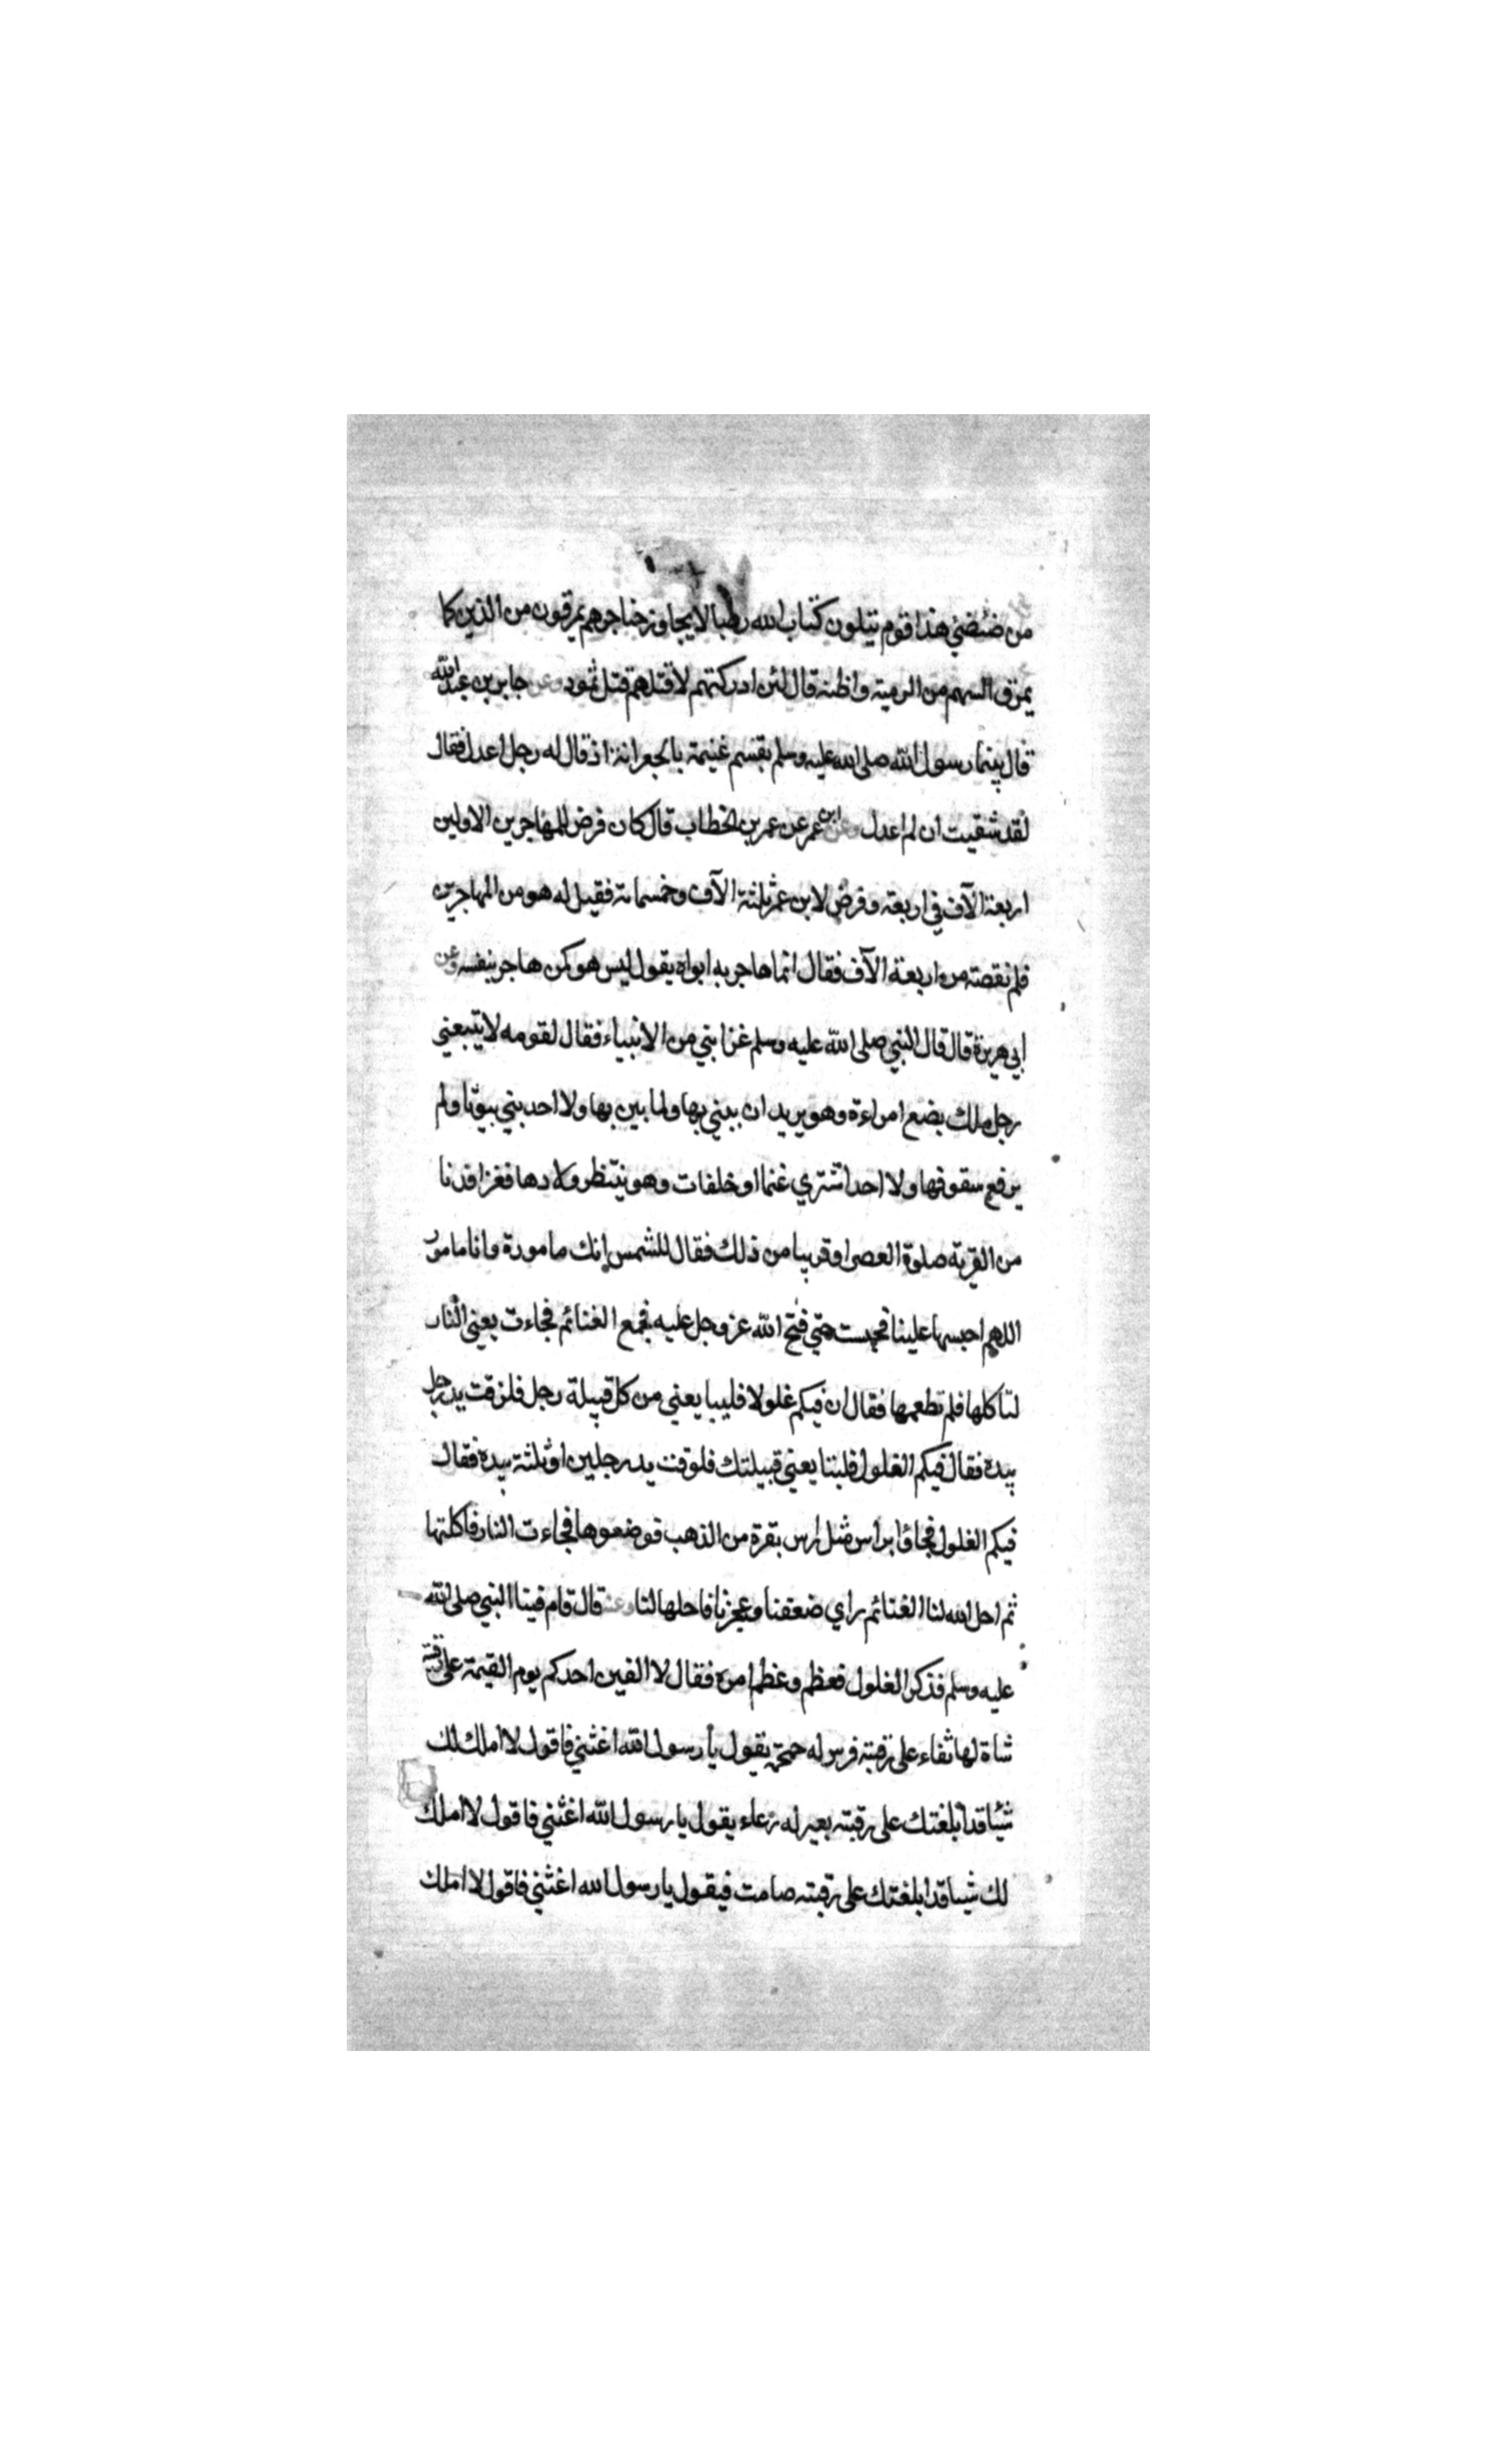 من ضئضئ هذا قوم يتلون كتاب الله رطبا لا يجاوز حناجرهم يمرقون من الدين كما
يمرق السهم من الرمية واظنه قال لئن ادركتهم لاقتلهم قتل ثمود وعن جابر بن عبد الله
قال بينما رسول الله صلى الله عليه وسلم يقسم غنيمة بالجعرانة اذ قال له رجل اعدل فقال
لقد شقيت ان لم اعدل وعن ابن عمر عن عمر بن الخطاب قال كان فرض للمهاجرين الاولين
اربعة الآف في اربعة وفرض لابن عمر ثلثة الآف وخمسمائة فقيل له هو من المهاجرين
فلم نقصته من اربعة الآف فقال انما هاجر به ابواه يقول ليس هو كمن هاجر بنفسه وعن
ابي هريرة قال قال النبي صلى الله عليه وسلم غزا نبي من الانبياء فقال لقومه لا يتبعني
رجل ملك بضع امراءة وهو يريد ان يبني بها ولما يبن بها ولا احد بني بيوتا ولم
يرفع سقوفها ولا احد اشتري غنما او خلفات وهو ينتظر ولادها فغزا فدنا
من القرية صلوة العصر او قريبا من ذلك فقال للشمس انك مامورة وانا مامور
اللهم احبسها علينا فحبست حتي فتح الله عز وجل عليه فجمع الغنائم فجاءت يعني النار
لتاكلها فلم تطعمها فقال ان فيكم غلولا فليبا يعني من كل قبيلة رجل فلزقت يد رجل
بيده فقال فيكم الغلول فلبتا يعني قبيلتك فلوقت يد رجلين او ثلثة بيده فقال
فيكم الغلول فجاؤا براس مثل راس بقرة من الذهب فوضعوها فجاءت النار فاكلتها
ثم احل الله لنا الغنائم راي ضعفنا وعجزنا فاحلها لنا وعنه قال قام فينا النبي صلى الله
عليه وسلم فذكر الغلول فعظم وعظم امره فقال لا الفين احدكم يوم القيمة على رقبته
شاة لها ثغاء على رقبته فرس له حمحمة يقول يا رسول الله اغثني فاقول لا املك لك
شيئا قد ابلغتك على رقبته بعير له رغاء يقول يا رسول الله اغثني فاقول لا املك
لك شيئا قد ابلغتك على رقبته صامت فيقول يا رسول الله اغثني فاقول لا املك